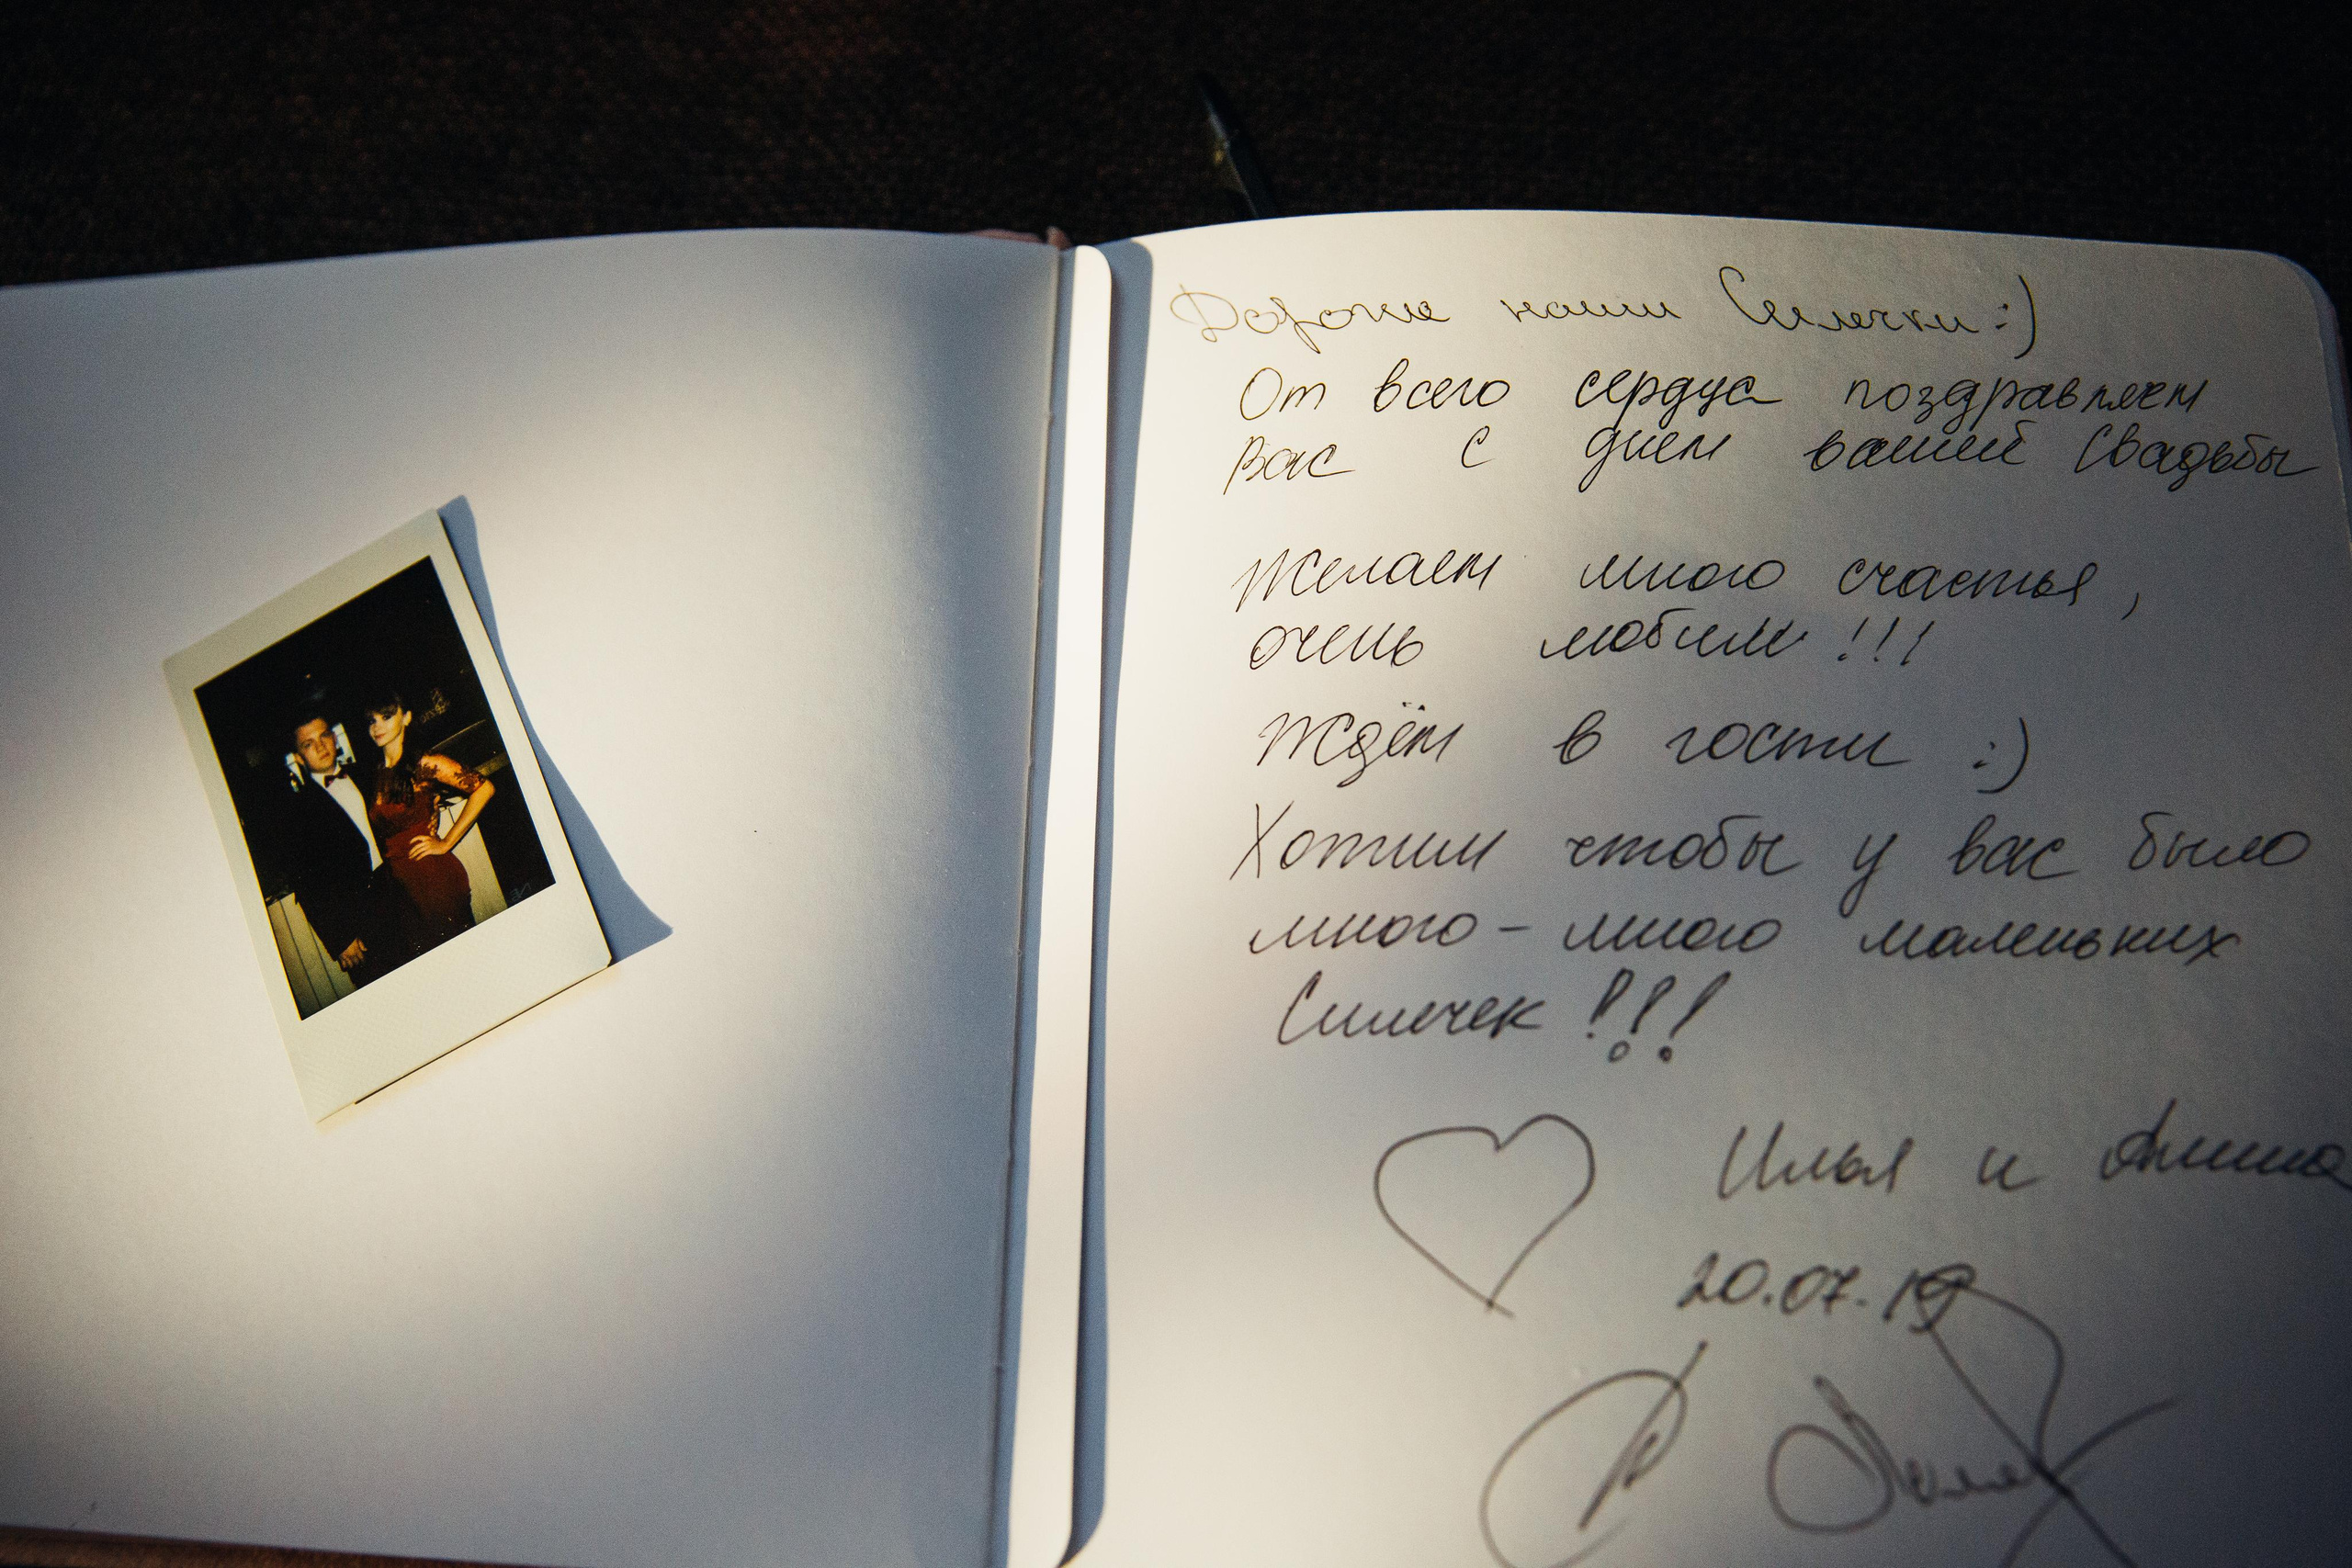 Дорогие наши Силечки :)
От всего сердца поздравляем
Вас с днем вашей Свадьбы
Желаем много счастья,
очень любим !!!
Ждём в гости :)
Хотим чтобы у вас было
много - много маленьких
Силечек !!!
Илья и
20.07.19